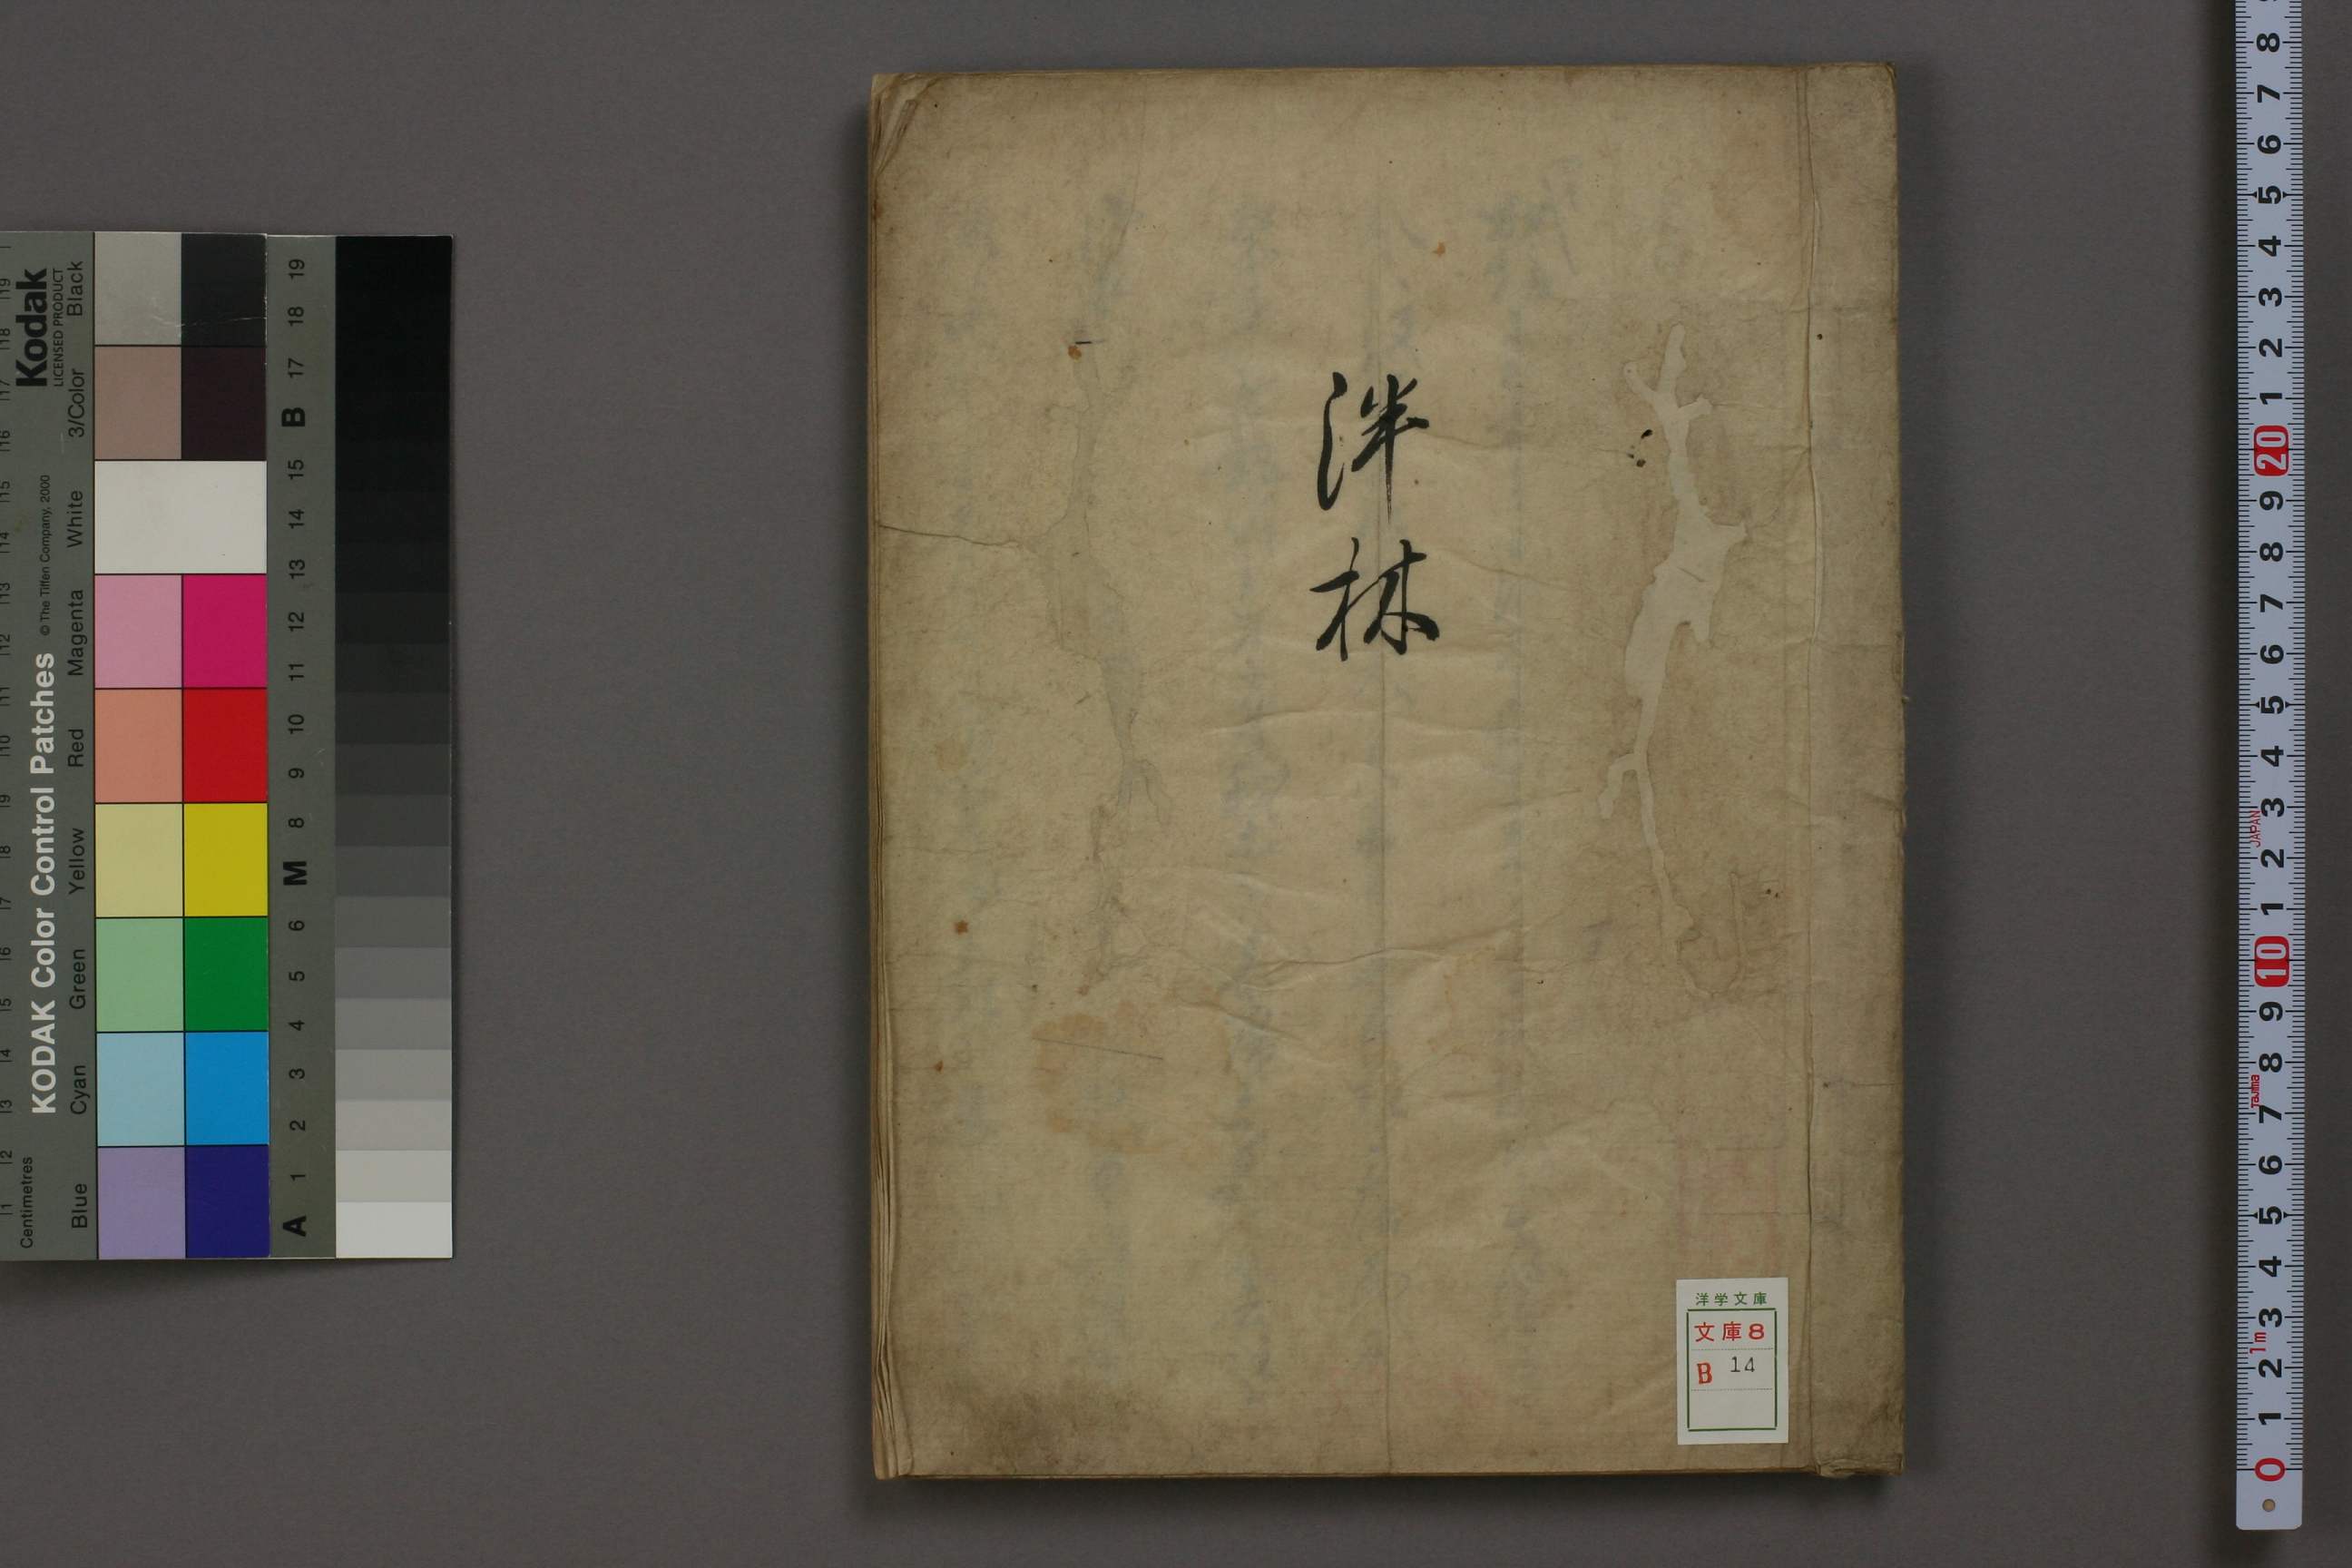 泮
林
洋学文庫
文庫8
B 14
Kodak
LICENSED PRODUCT
KODAK Color Control Patches
© The Tiffen Company, 2000
Centimetres
Blue Cyan Green Yellow Red Magenta White 3/Color Black
A 1 2 3 4 5 6 M 8 9 10 11 12 13 14 15 B 17 18 19
0 1 2 3 4 5 6 7 8 9 10 1 2 3 4 5 6 7 8 9 20 1 2 3 4 5 6 7 8
1m
Tajima
JAPAN